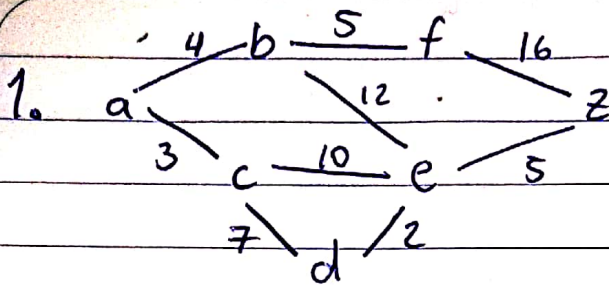 4 b 5 f 16
1. a 12 z
3 c 10 e 5
7 d 2